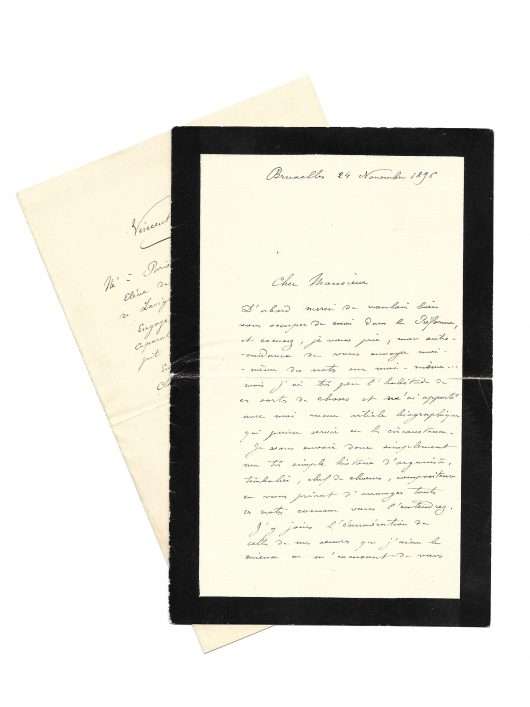 Vincent
Né à Paris
élève de
de Lavig
Engagé
Bruxelles 24 Novembre 1895
Cher Monsieur
D'abord merci de vouloir bien
vous occuper de moi dans la Réforme,
et excusez, je vous prie, mon outre-
cuidance de vous envoyer moi-
même des notes sur moi-même...
mais j'ai très peu l'habitude de
ces sortes de choses et n'ai apporté
avec moi aucun article biographique
qui puisse servir en la circonstance.
Je vous envoie donc simplement
ma très simple histoire d'organiste,
timbalier, chef de chœurs, compositeur
en vous priant d'arranger toutes
ces notes comme vous l'entendrez.
J'y joins l'énumération de
celles de mes œuvres que j'aime le
mieux en m'excusant de vous